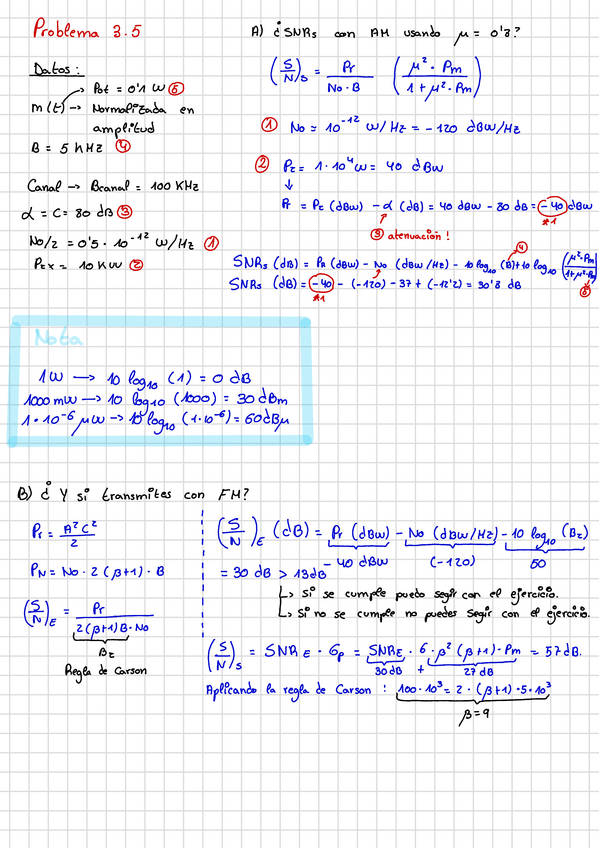 Problema 3.5
Datos:
Pot = 0'1 W ⑤
m(t) → Normalizada en
amplitud
B = 5 kHz ④
Canal → Bcanal = 100 KHz
α = C = 80 dB ③
No/2 = 0'5 · 10^-12 W/Hz ①
Ptx = 10 KW ②
A) ¿SNRs con AM usando μ = 0'8?
(S/N)s = Pr / (No · B) (μ² · Pm / (1 + μ² · Pm))
① No = 10^-12 W/Hz = -120 dBW/Hz
② Pt = 1 · 10^4 W = 40 dBW
↓
Pr = Pt (dBW) - α (dB) = 40 dBW - 80 dB = -40 dBW
*1
③ atenuación!
④
SNRs (dB) = PR (dBW) - No (dBW/Hz) - 10 log10 (B) + 10 log10 (μ² · Pm / (1 + μ² · Pm))
⑤
SNRs (dB) = -40 - (-120) - 37 + (-12'2) = 30'8 dB
*1
Nota
1 W → 10 log10 (1) = 0 dB
1000 mW → 10 log10 (1000) = 30 dBm
1 · 10^-6 μW → 10 log10 (1·10^-6) = 60 dBμ
B) ¿Y si transmites con FM?
Pr = A²C² / 2
PN = No · 2 (β+1) · B
(S/N)E = Pr / (2(β+1)B · No)
Bt
Regla de Carson
(S/N)E (dB) = Pr (dBW) - No (dBW/Hz) - 10 log10 (Bt)
-40 dBW (-120) 50
= 30 dB > 13 dB
↳ Si se cumple puedo segir con el ejercicio.
↳ Si no se cumple no puedes segir con el ejercicio.
(S/N)s = SNRE · Gp = SNRE · 6 · β² (β+1) · Pm = 57 dB.
30 dB + 27 dB
Aplicando la regla de Carson : 100 · 10³ = 2 · (β+1) · 5 · 10³
β = 9